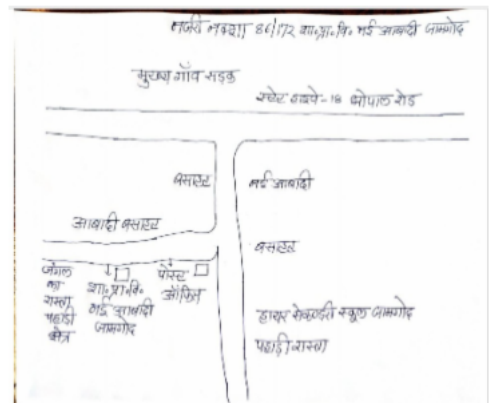 नजरी नक्शा 86/172 शा०प्रा०वि० नई आबादी जामगोद
मुख्य गाँव सड़क
स्टेट हाइवे-18 भोपाल रोड
बसाहट
नई आबादी
आबादी बसाहट
बसाहट
जंगल का रास्ता पहाड़ी क्षेत्र
शा०प्रा०वि० नई आबादी जामगोद
पोस्ट ऑफिस
हायर सेकण्डरी स्कूल जामगोद
पहाड़ी रास्ता